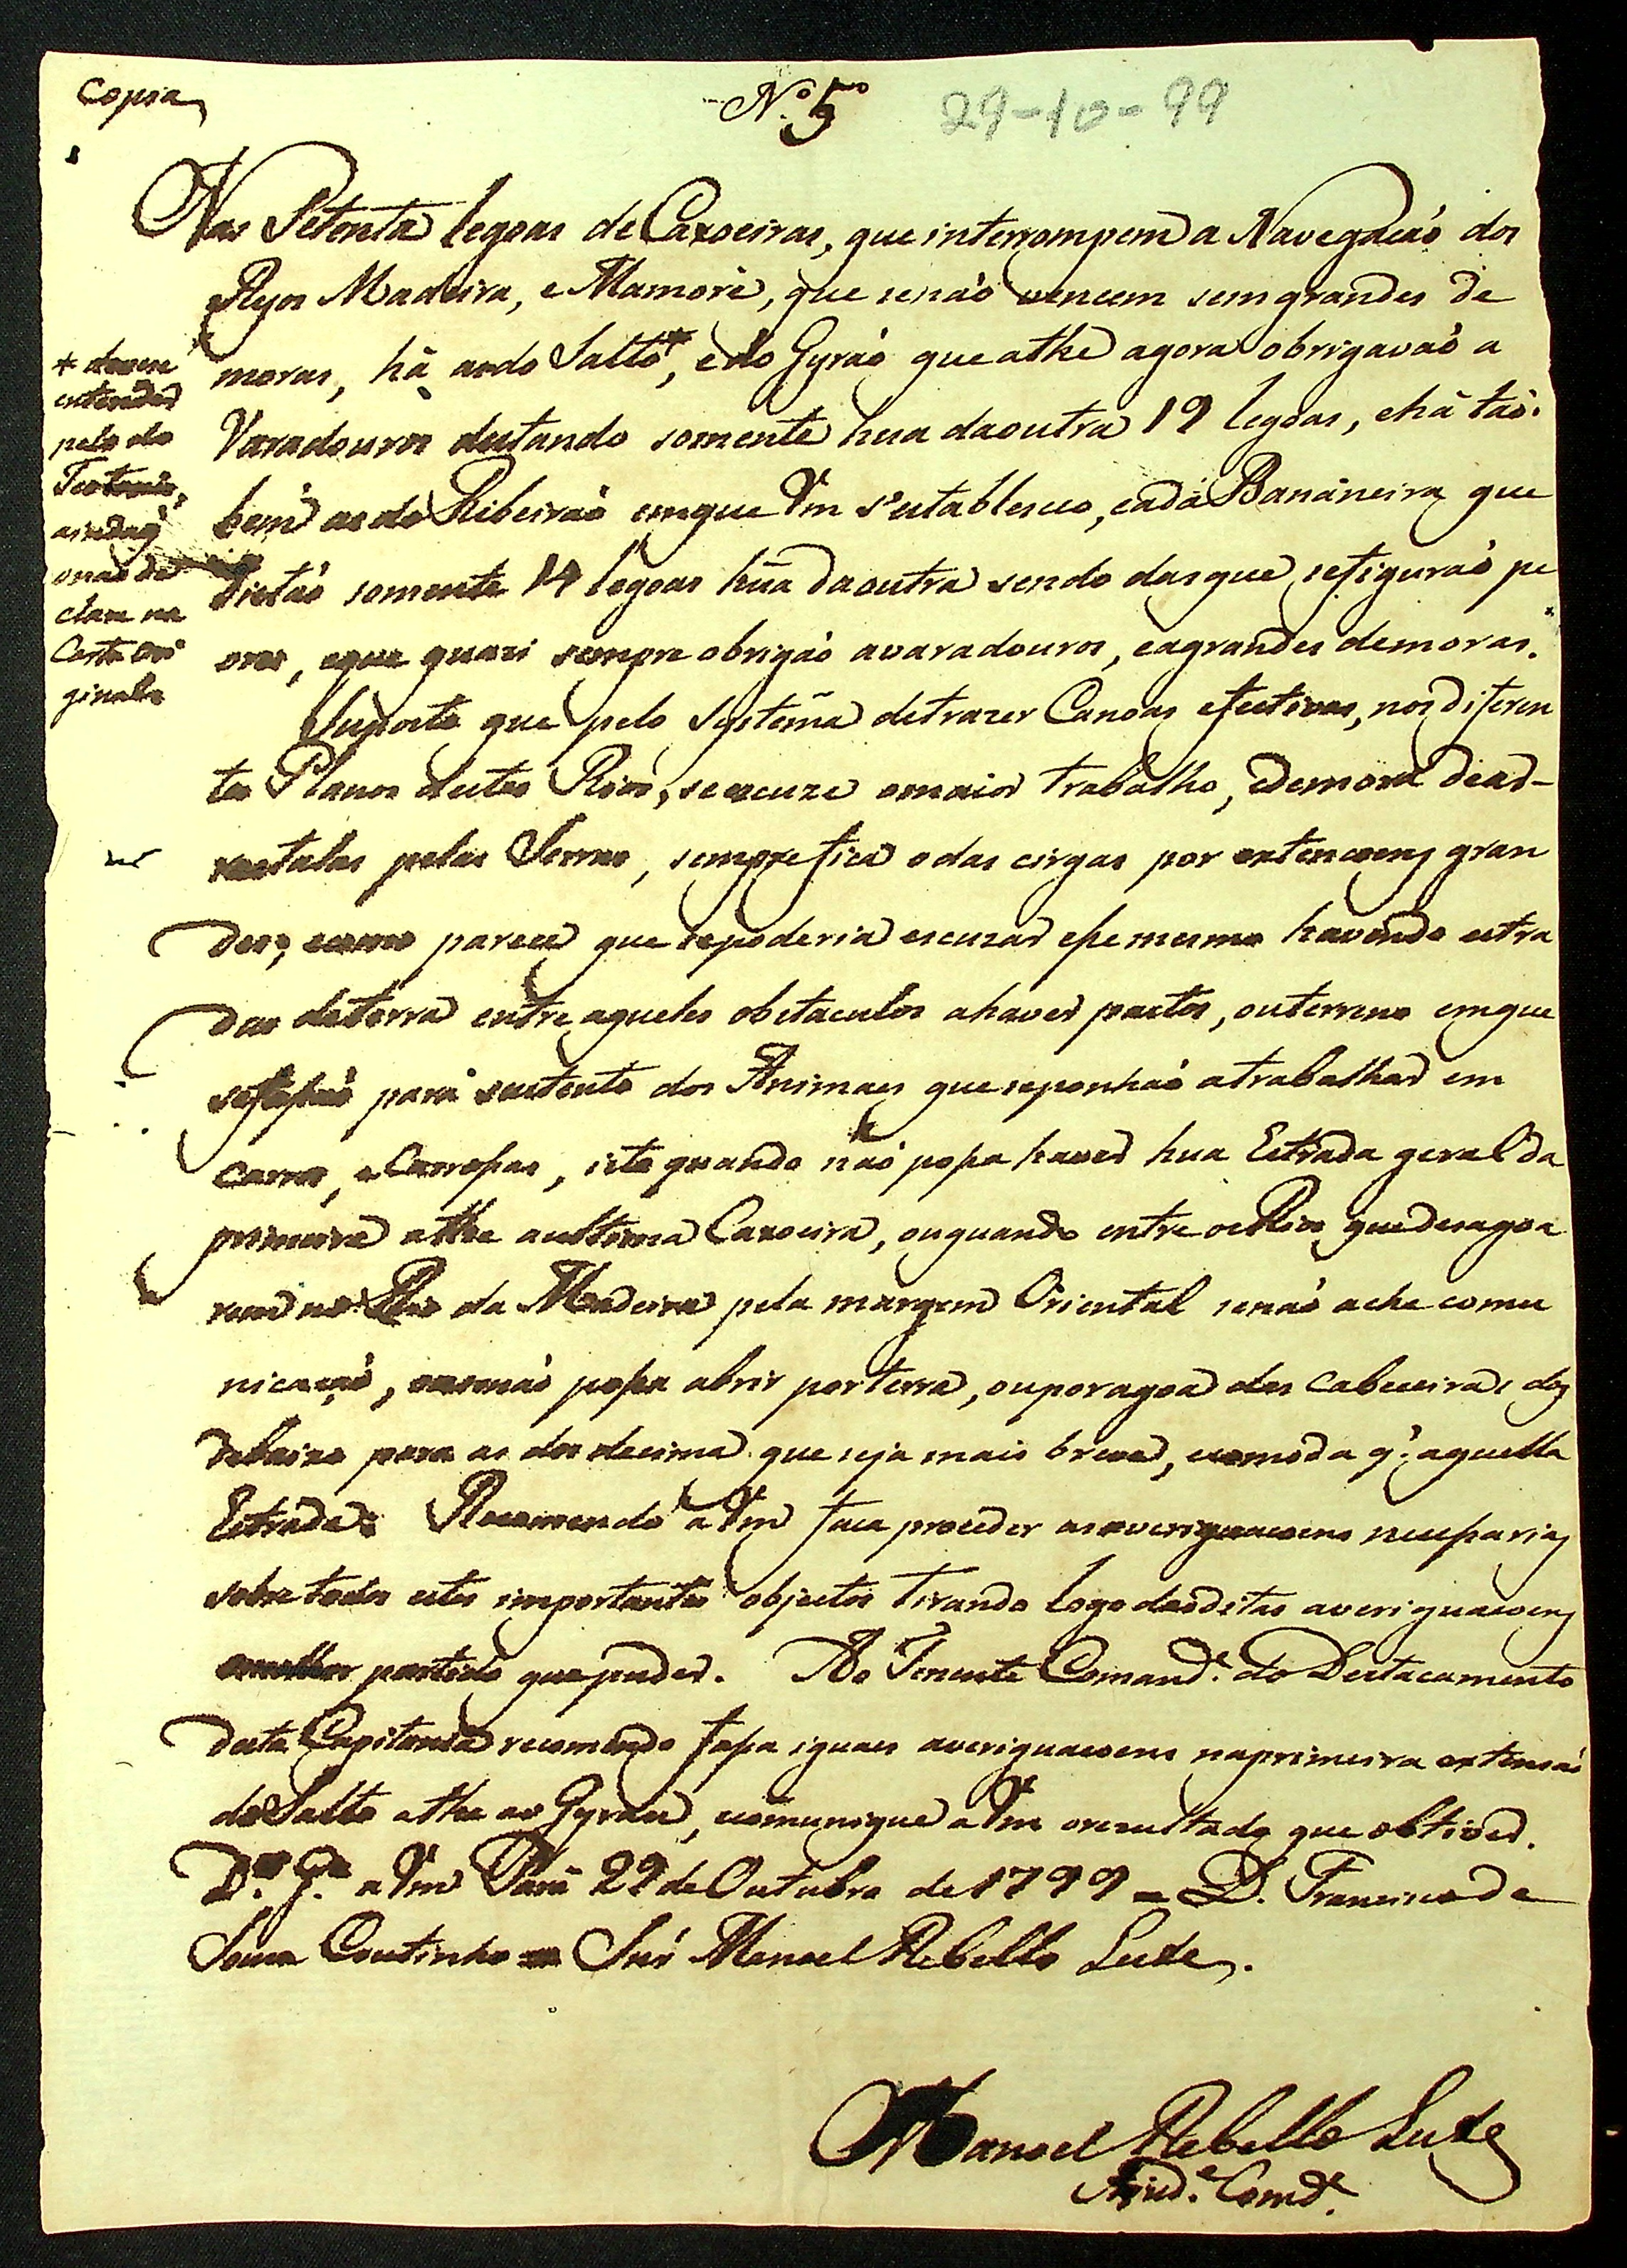 Copia
N.º 5º
29-10-99
Nas Setenta legoas de Caxoeiras, que interrompem a Navegacaõ dos
Ryos Madeira, e Mamorè, que senaõ vencem sem grandes de
moras, hà as do Salto*, e do Gyraõ que athe agora obrigavaõ a
Varadouros distando somente hua da outra 19 legoas, e hà taõ
bem as do Ribeiraõ em que Vm s'establesceo, e a da Bananeira que
distaõ somente 14 legoas hũa da outra sendo das que se figuraõ pe
ores, e que quasi sempre obrigaõ a varadouros, e a grandes demoras.
Suposto que pelo Systema de trazer Canoas efectivas, nos diferen
tes Planos destes Rios, se escuze o maior trabalho, e demora de as
varalas pelas Serras, sempre fica o das cirgas por extencoens gran
des; e como parece que se poderia escuzar esse mesmo havendo estra
das de terra entre aqueles obstaculos a haver pastos, ou terreno em que
se fassaõ para sustento dos Animaes que se ponhaõ a trabalhar em
carros, e Carrossas, isto quando naõ possa haver hua Estrada geral da
primeira athe a ultima Caxoeira, ou quando entre os Rios que desagoa
rem no Rio da Madeira pela margem Oriental senaõ ache comu
nicaçaõ, ou senaõ possa abrir por terra, ou por agoa das Cabeceiras dos
debaixo para as dos decima que seja mais breve, e comoda q. aquella
Estrada: Recomendo a Vm faca proceder as averiguacoens necessarias
sobre todos estes importantes objectos tirando logo das ditas averiguacoens
o melhor partido que puder. Ao Tenente Comand.e do Destacamento
desta Capitania recomendo fassa iguaes averiguacoens na primeira extensaõ
do Salto athe ao Gyrau, e comunique a Vm o rezultado que obtiver.
D.s G.e a Vm Parà 29 de Outubro de 1799 = D. Francisco de
Souza Coutinho = Snr Manoel Rebello Leite.
* devese
entender
pelo do
Teotonio,
ainda q'
o naõ de
clare na
Carta Ori
ginal
Manoel Rebello Leite
Ajud.e Comd.e